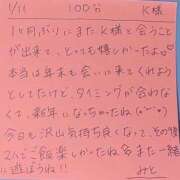 1/11 100分 K様
1ヶ月ぶりにまたK様と会うこと
が出来て、とっても嬉しかったよ♡
本当は年末も会いに来てくれよう
としてたけど、タイミングが合わなく
て、新年になっちゃったね
今日も沢山気持ち良くなって、その後
2人でご飯楽しかったね また一緒
に遊ぼうね!! みと